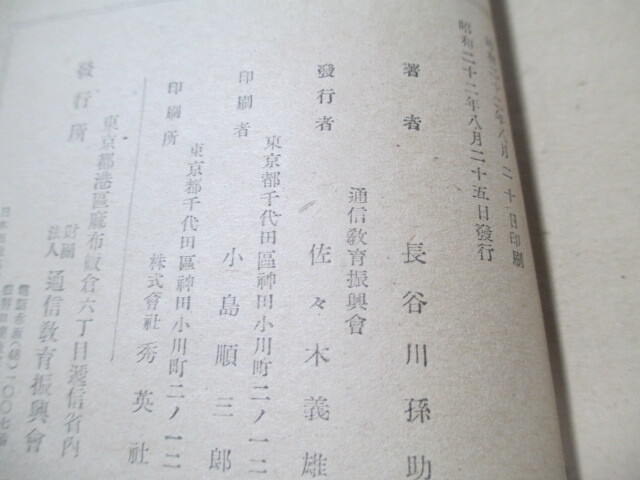 昭和二十二年八月二十日印刷
昭和二十二年八月二十五日發行
著者 長谷川孫助
通信敎育振興會
發行者 佐々木義雄
東京都千代田區神田小川町二ノ一二
印刷者 小島順三郎
東京都千代田區神田小川町二ノ一二
印刷所 株式會社 秀英社
東京都港區麻布飯倉六丁目遞信省內
發行所 財團法人 通信敎育振興會